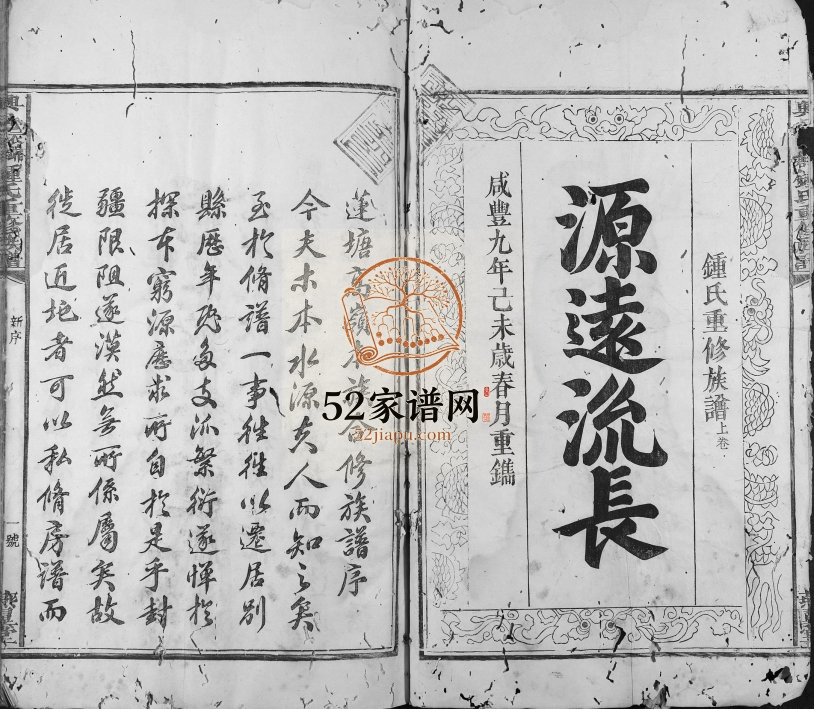 鍾氏重修族譜上卷
源遠流長
咸豐九年己未歲春月重鐫
蓮塘高嶺本族合修族譜序
今夫木本水源夫人而知之矣
至於脩譜一事徃徃以遷居別
縣歷年既多支流繁衍遂憚於
探本窮源歷求所自於是乎封
疆限阻遂漠然無所係屬矣故
徙居近地者可以私脩房譜而
新序
一號
52家谱网
52jiapu.com